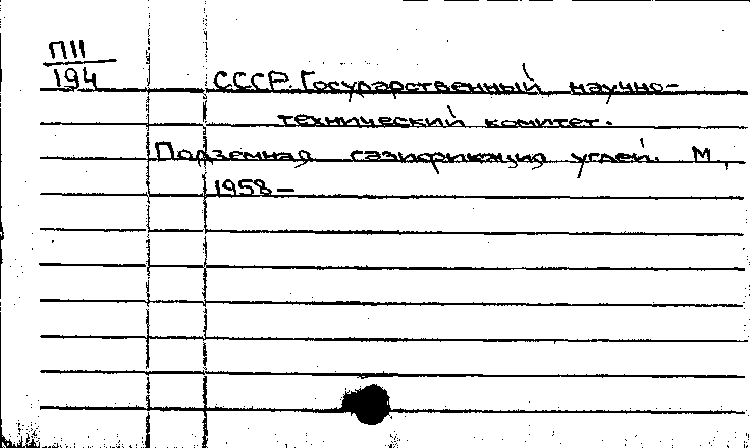 П11
194
СССР. Государственный научно-
технический комитет.
Подземная газификация углей. М.,
1958—